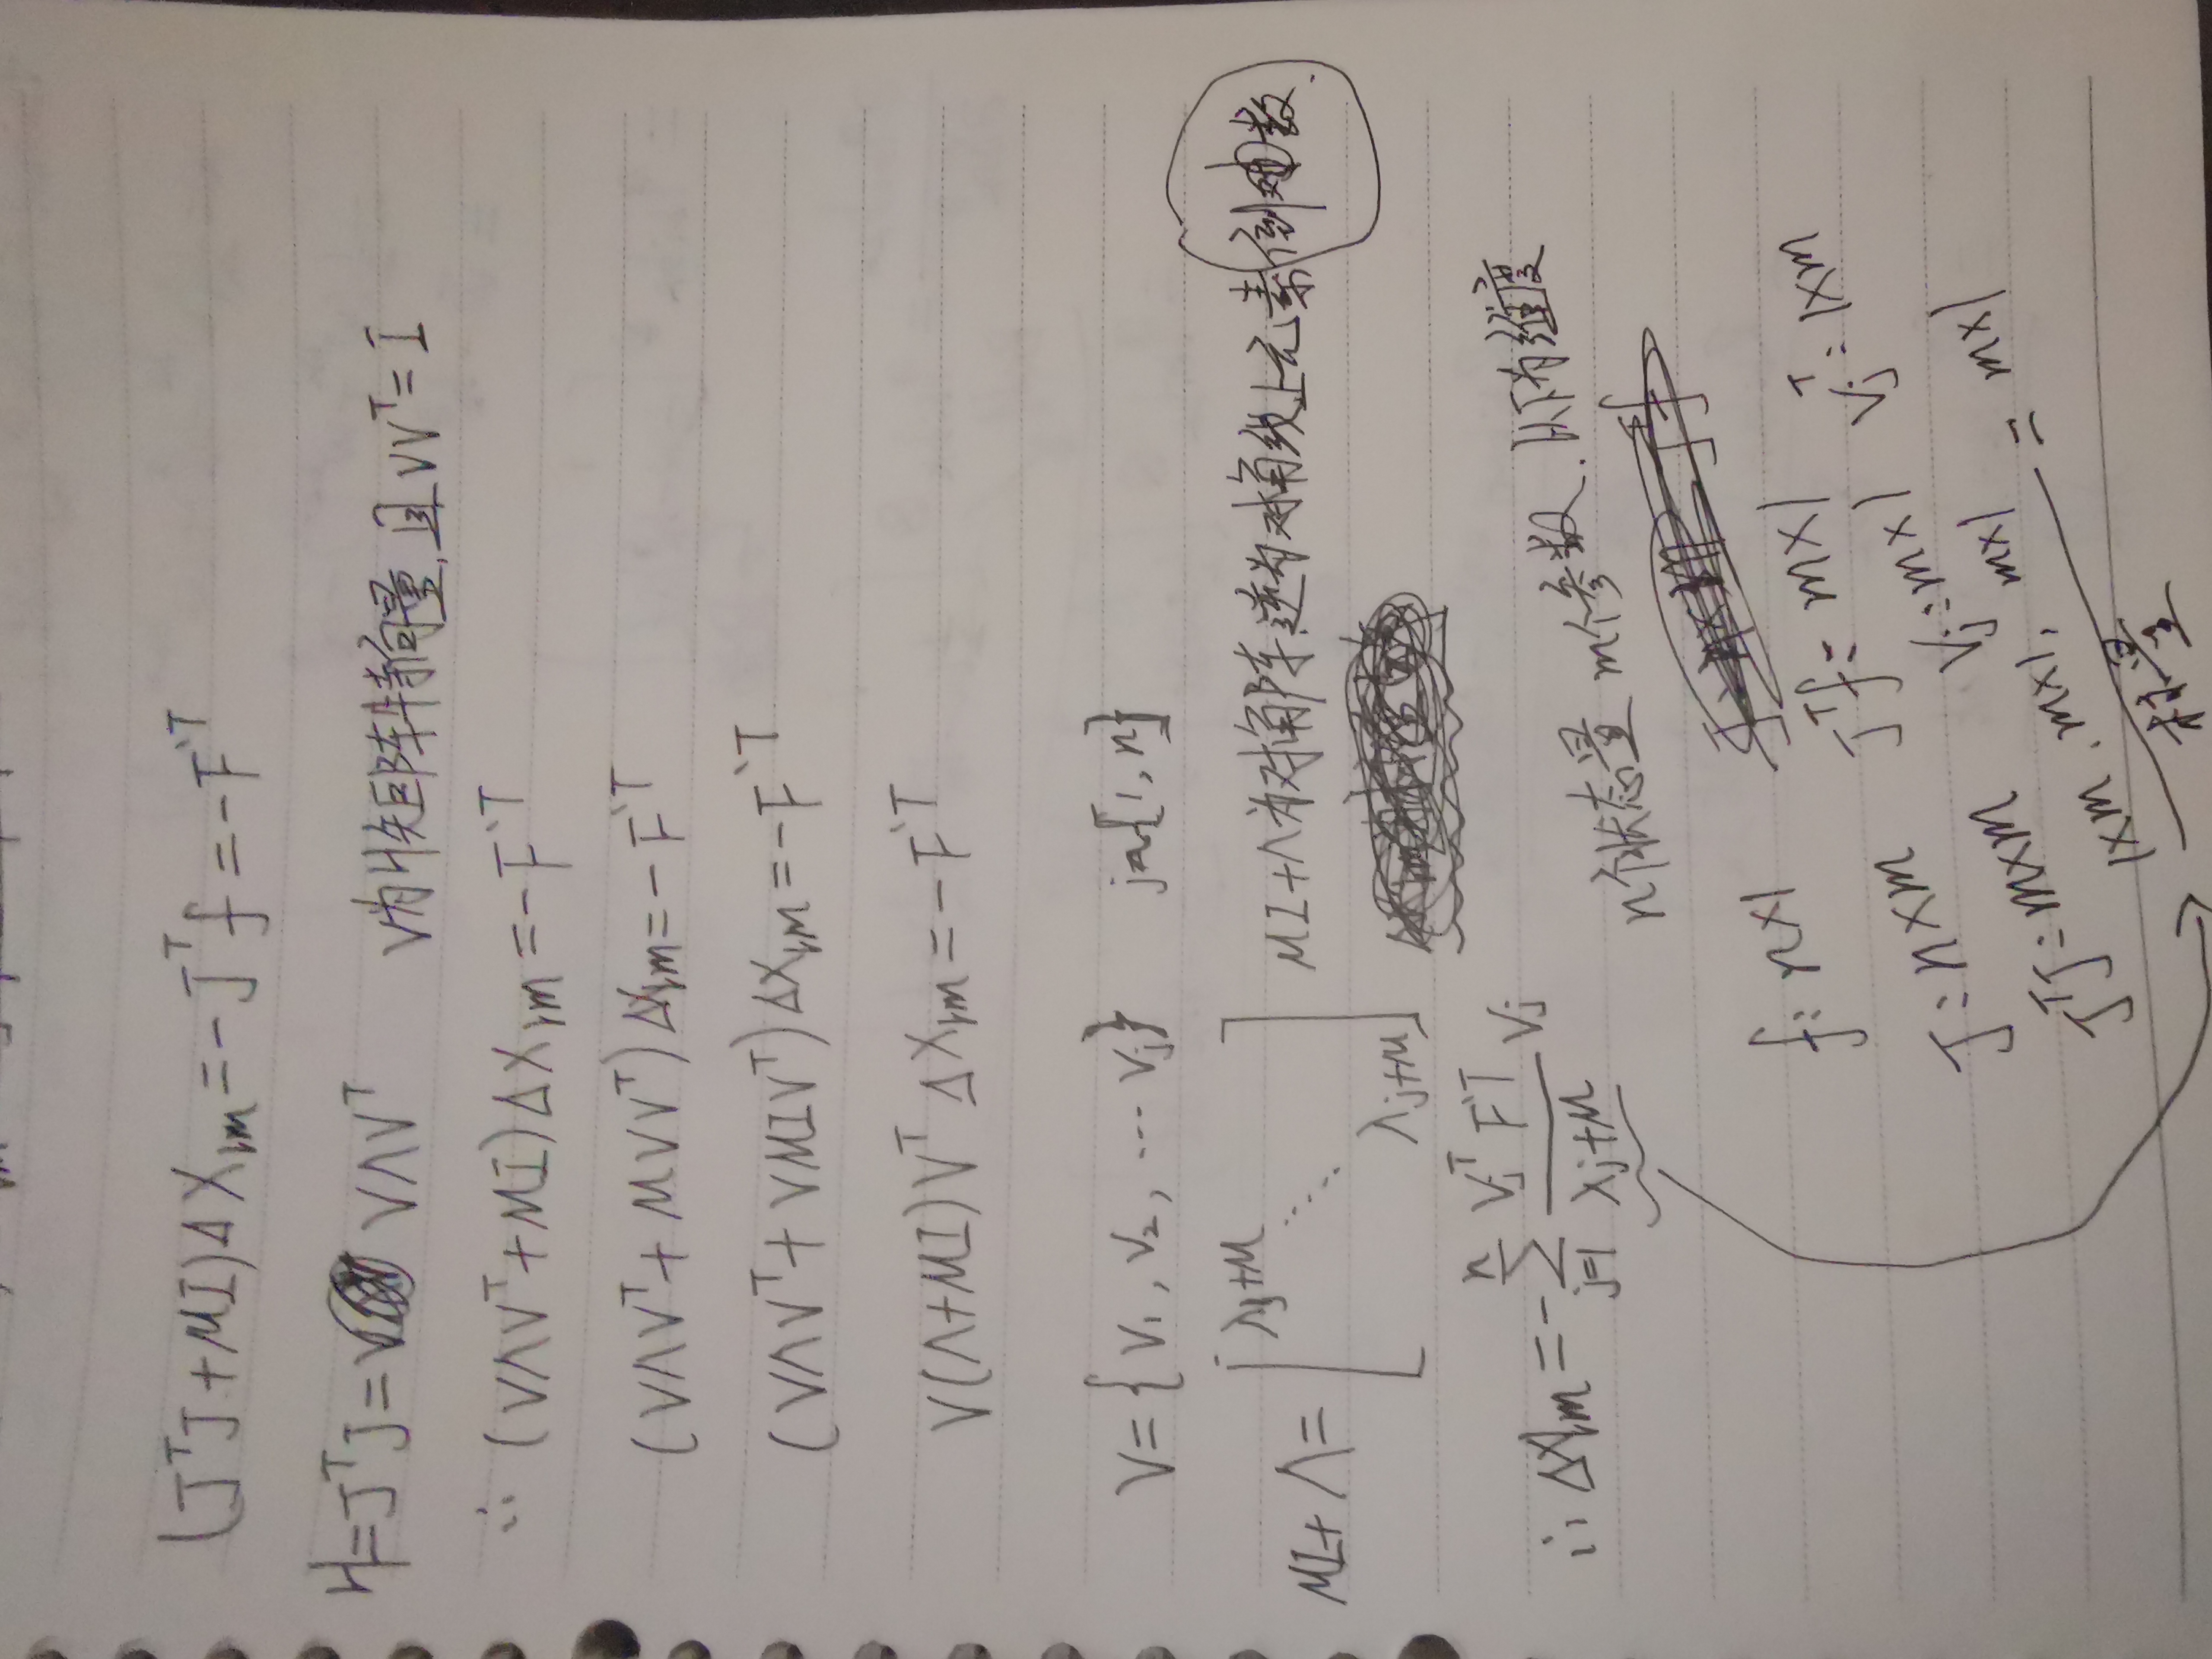 (JᵀJ+μI)ΔXlm=-Jᵀf=-F'ᵀ
H=JᵀJ=VΛVᵀ V为H矩阵特征向量,且VVᵀ=I
∴ (VΛVᵀ+μI)ΔXlm=-F'ᵀ
(VΛVᵀ+μVVᵀ)ΔXlm=-F'ᵀ
(VΛVᵀ+VμIVᵀ)ΔXlm=-F'ᵀ
V(Λ+μI)VᵀΔXlm=-F'ᵀ
V={V₁,V₂,…Vj} j∈[1,n]
μI+Λ=[λj+μ … λj+μ] μI+Λ为对角阵.逆为对角线上元素倒数.
∴ ΔXlm=-∑ⁿⱼ₌₁ VjᵀF'ᵀ/(λj+μ) Vj
n个状态量 m个参数.
f: n×1 Jᵀf: m×1 Vjᵀ: 1×m
J: n×m Vj: m×1
JᵀJ: m×m
1×m. m×1. m×1 = m×1
标量